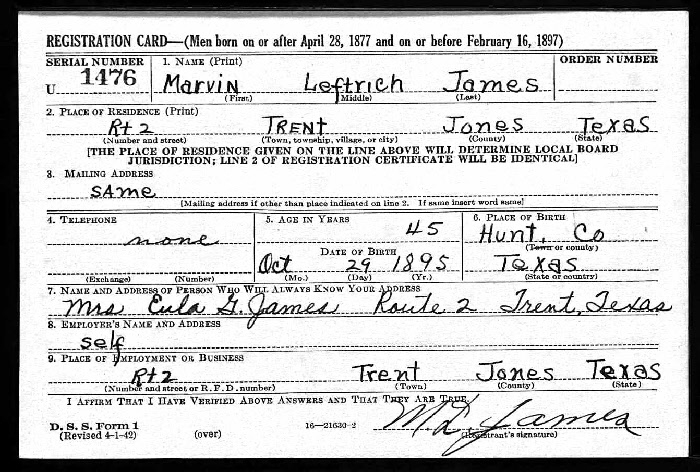 REGISTRATION CARD—(Men born on or after April 28, 1877 and on or before February 16, 1897)
SERIAL NUMBER 1. NAME (Print) ORDER NUMBER
U 1476 Marvin Leftrich James
(First) (Middle) (Last)
2. PLACE OF RESIDENCE (Print)
Rt 2 TRENT Jones Texas
(Number and street) (Town, township, village, or city) (County) (State)
[THE PLACE OF RESIDENCE GIVEN ON THE LINE ABOVE WILL DETERMINE LOCAL BOARD
JURISDICTION; LINE 2 OF REGISTRATION CERTIFICATE WILL BE IDENTICAL]
3. MAILING ADDRESS
same
[Mailing address if other than place indicated on line 2. If same insert word same]
4. TELEPHONE 5. AGE IN YEARS 6. PLACE OF BIRTH
none 45 Hunt, Co
DATE OF BIRTH (Town or county)
Oct 29 1895 Texas
(Exchange) (Number) (Mo.) (Day) (Yr.) (State or country)
7. NAME AND ADDRESS OF PERSON WHO WILL ALWAYS KNOW YOUR ADDRESS
Mrs Eula G. James Route 2 Trent, Texas
8. EMPLOYER'S NAME AND ADDRESS
self
9. PLACE OF EMPLOYMENT OR BUSINESS
Rt 2 Trent Jones Texas
(Number and street or R. F. D. number) (Town) (County) (State)
I AFFIRM THAT I HAVE VERIFIED ABOVE ANSWERS AND THAT THEY ARE TRUE.
M. L. James
D. S. S. Form 1
(Revised 4-1-42) (over) 16—21630-2 (Registrant's signature)